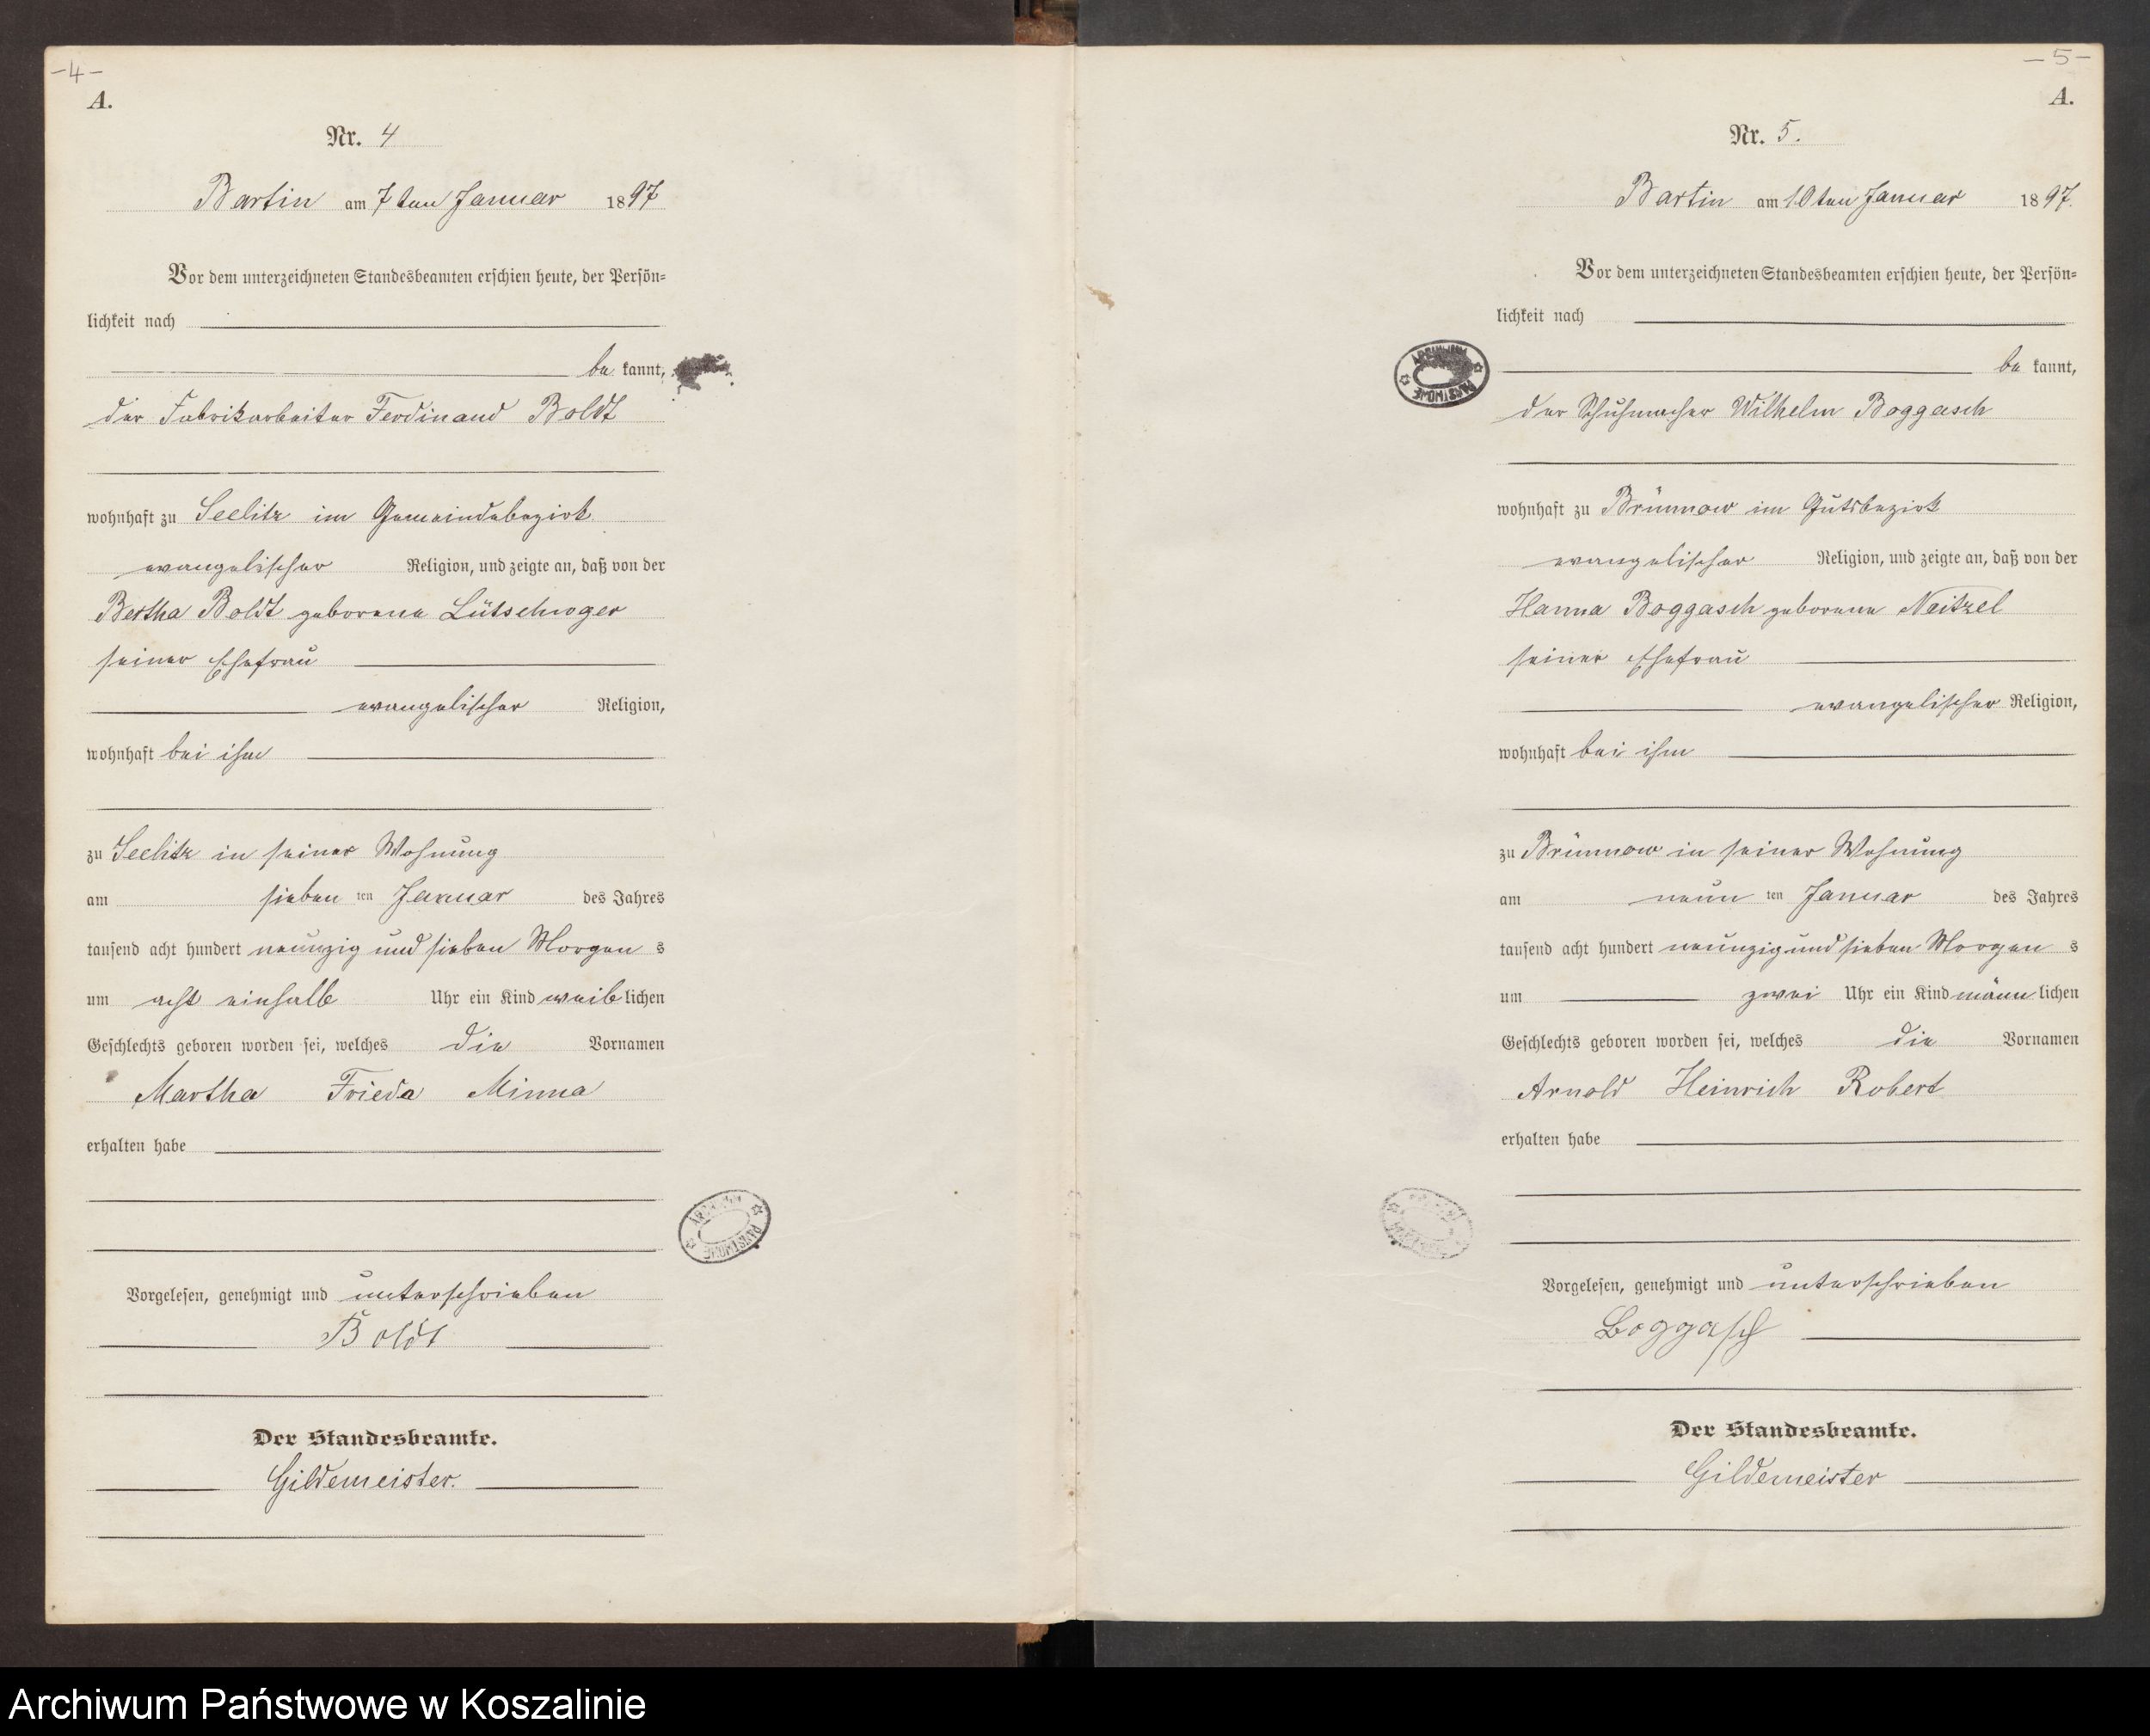 -4-
A.
Nr. 4
Bartin am 7ten Januar 1897
Vor dem unterzeichneten Standesbeamten erschien heute, der Persön=
lichkeit nach
be kannt,
der Fabrikarbeiter Ferdinand Boldt
wohnhaft zu Seelitz im Gemeindebezirk
evangelischer Religion, und zeigte an, daß von der
Bertha Boldt geborene Lütschwager
seiner Ehefrau
evangelischer Religion,
wohnhaft bei ihm
zu Seelitz in seiner Wohnung
am sieben ten Januar des Jahres
tausend acht hundert neunzig und sieben Morgen s
um acht einhalb Uhr ein Kind weib lichen
Geschlechts geboren worden sei, welches die Vornamen
Martha Frieda Minna
erhalten habe
Vorgelesen, genehmigt und unterschrieben
Boldt
Der Standesbeamte.
Gildemeister.
-5-
A.
Nr. 5.
Bartin am 10ten Januar 1897.
Vor dem unterzeichneten Standesbeamten erschien heute, der Persön=
lichkeit nach
be kannt,
der Schuhmacher Wilhelm Boggasch
wohnhaft zu Brünnow im Gutsbezirk
evangelischer Religion, und zeigte an, daß von der
Hanna Boggasch geborene Neitzel
seiner Ehefrau
evangelischer Religion,
wohnhaft bei ihm
zu Brünnow in seiner Wohnung
am neun ten Januar des Jahres
tausend acht hundert neunzig und sieben Morgen s
um zwei Uhr ein Kind männ lichen
Geschlechts geboren worden sei, welches die Vornamen
Arnold Heinrich Robert
erhalten habe
Vorgelesen, genehmigt und unterschrieben
Boggasch
Der Standesbeamte.
Gildemeister
ARCHIWUM PAŃSTWOWE
Archiwum Państwowe w Koszalinie